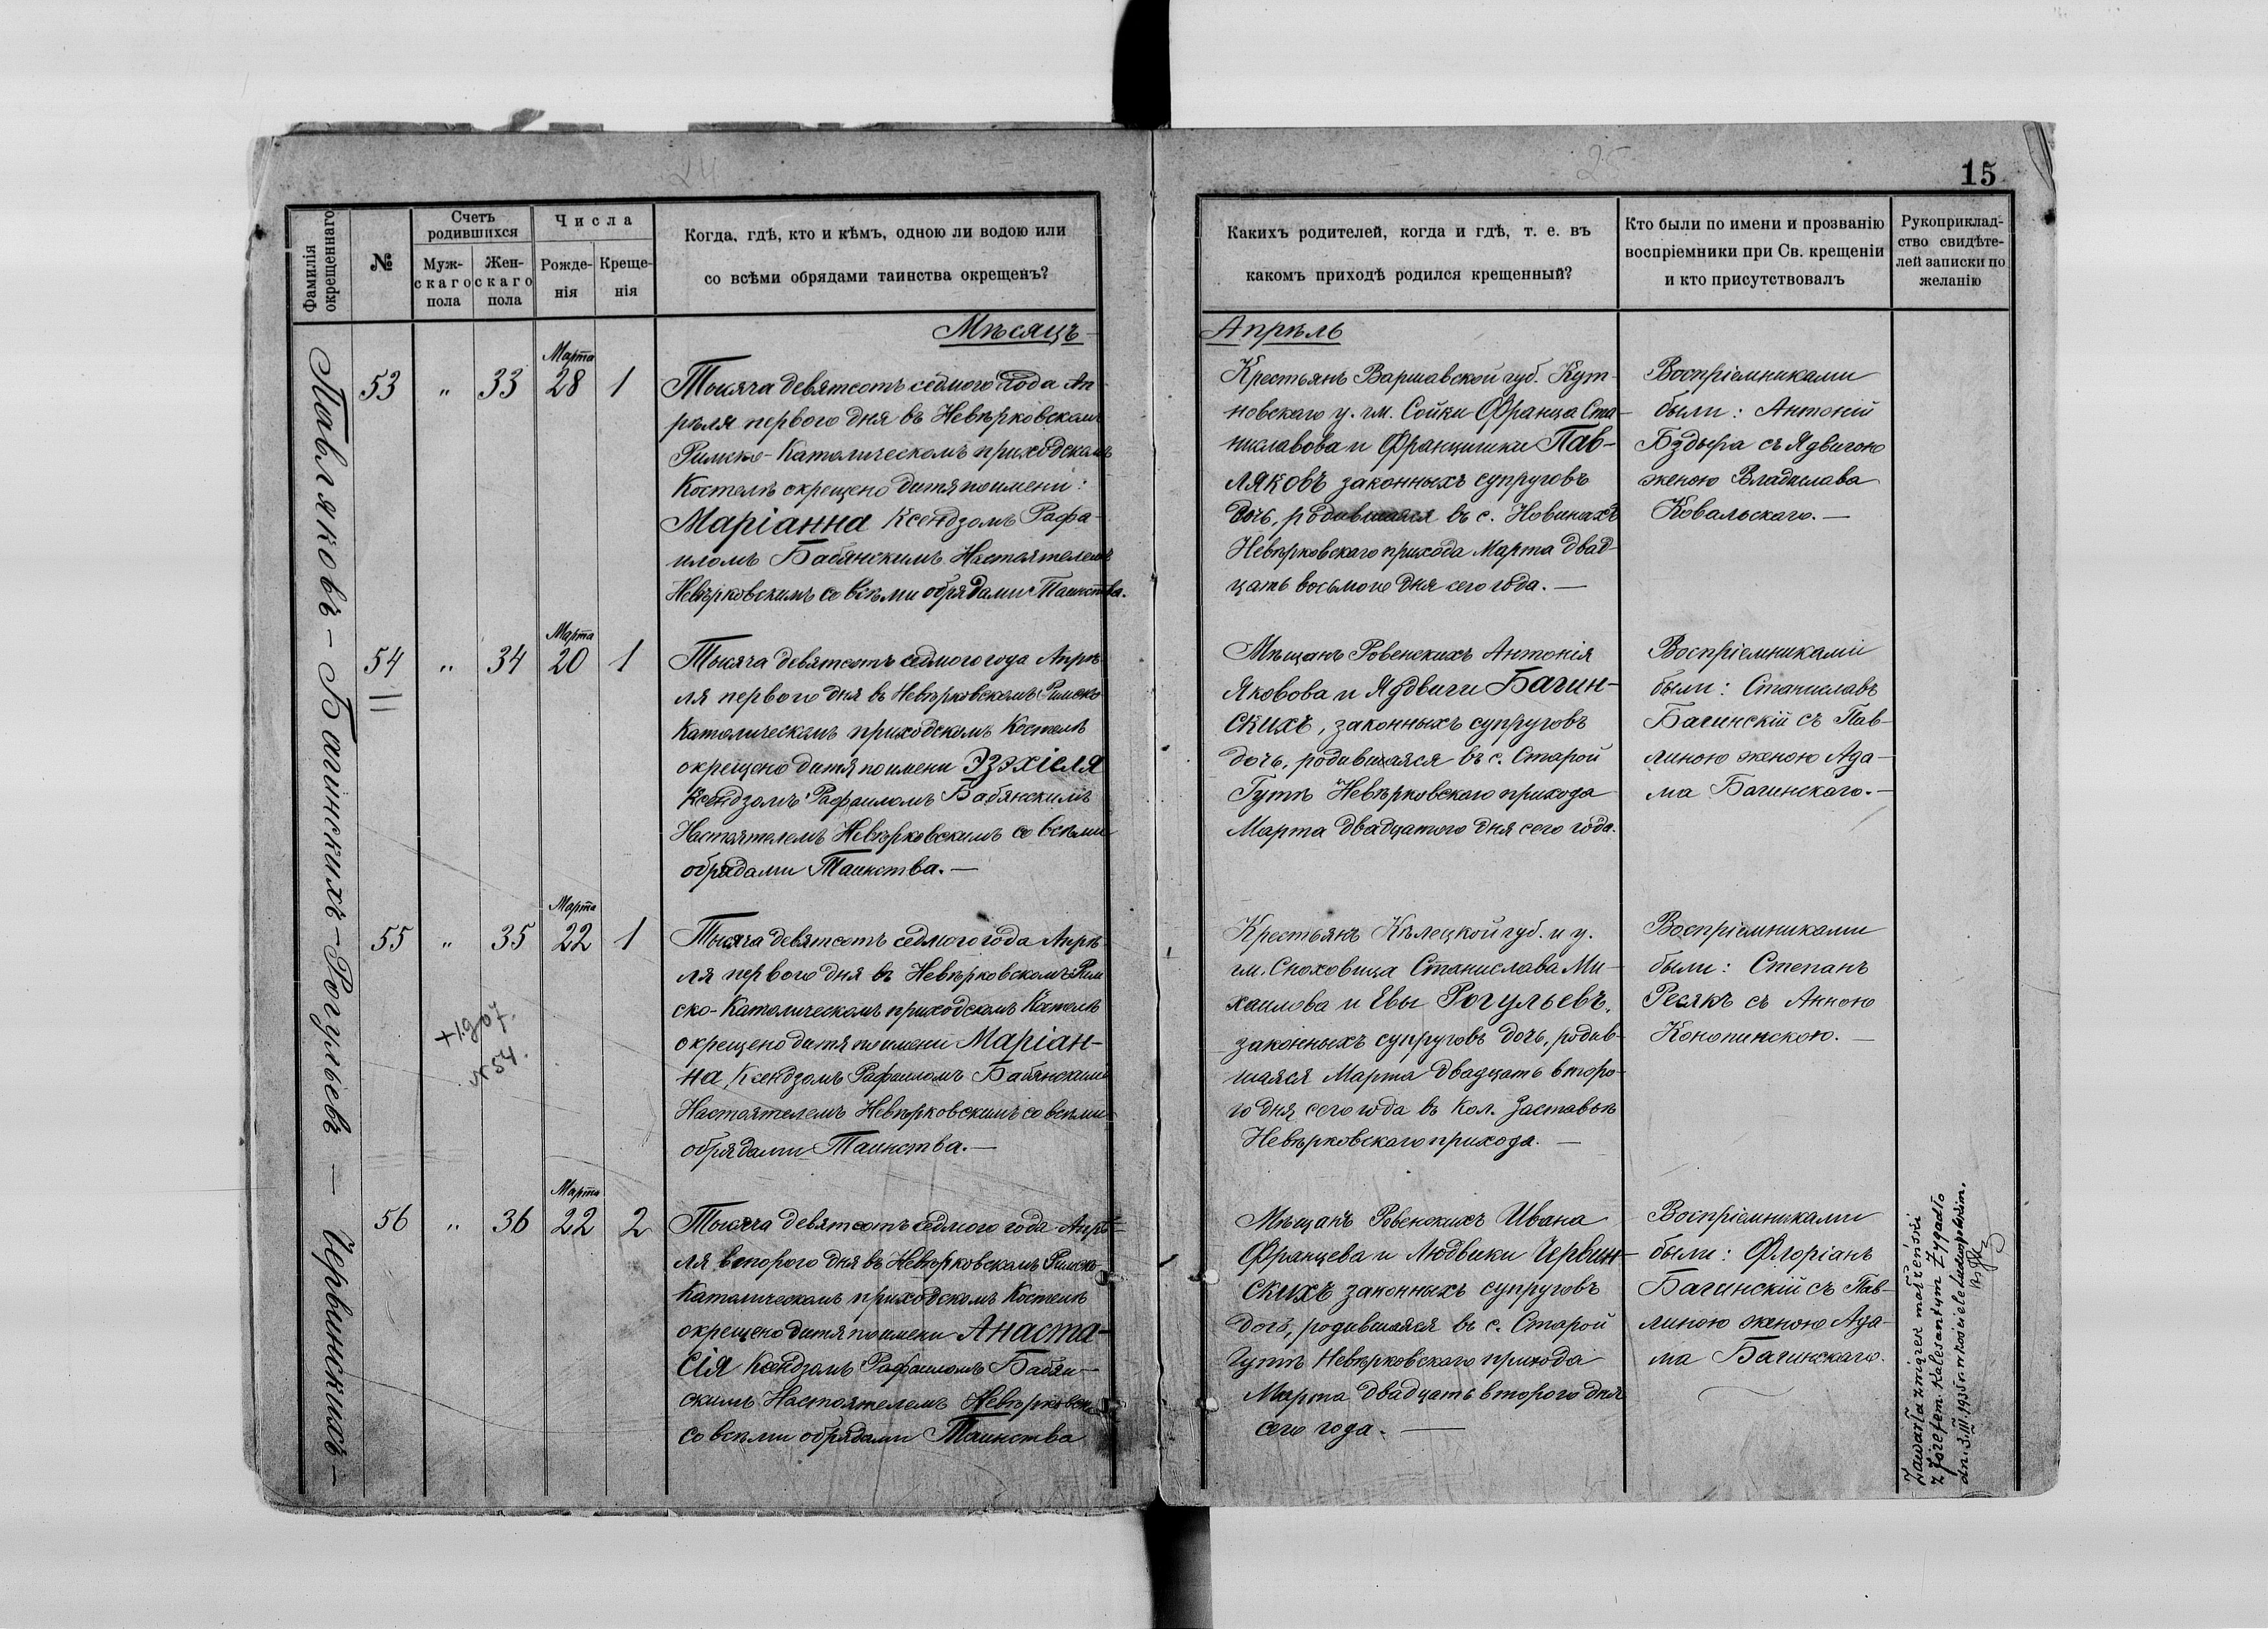 24
25
15
Фамилія окрещеннаго
№
Счетъ родившихся
Мужскаго пола
Женскаго пола
Числа
Рожденія
Крещенія
Когда, гдѣ, кто и кѣмъ, одною ли водою или
со всѣми обрядами таинства окрещенъ?
Какихъ родителей, когда и гдѣ, т. е. въ
какомъ приходѣ родился крещенный?
Кто были по имени и прозванію
воспріемники при Св. крещеніи
и кто присутствовалъ
Рукоприклад-
ство свидѣте-
лей записки по
желанію
Мѣсяцъ
Апрѣль
Павляковъ – Багинскихъ – Рогульевъ – Червинскихъ –
53 " 33 Марта 28 1
Тысяча девятсотъ седмого года Ап-
рѣля первого дня въ Невѣрковскомъ
Римско-Католическомъ приходскомъ
Костелѣ окрещено дитя по имени:
Маріанна Ксендзомъ Рафа-
иломъ Бабянскимъ Настоятелемъ
Невѣрковскимъ со всѣми обрядами Таинства.
Крестьянъ Варшавской губ. Кут-
новскаго у. гм. Сойки Франца Ста-
ниславова и Францишки Пав-
ляковъ законныхъ супруговъ
дочь, родившаяся въ с. Новинахъ
Невѣрковскаго прихода Марта двад-
цать восьмого дня сего года. —
Воспріемниками
были: Антоній
Бздыра съ Ядвигою
женою Владислава
Ковальскаго. —
54 " 34 Марта 20 1
Тысяча девятсотъ седмого года Апрѣ-
ля первого дня въ Невѣрковскомъ Римско-
Католическомъ приходскомъ Костелѣ
окрещено дитя по имени Эзэхіеля
Ксендзомъ Рафаиломъ Бабянскимъ
Настоятелемъ Невѣрковскимъ со всѣми
обрядами Таинства. —
Мѣщанъ Ровенскихъ Антонія
Яковова и Ядвиги Багин-
скихъ, законныхъ супруговъ
дочь, родившаяся въ с. Старой
Гутѣ Невѣрковскаго прихода
Марта двадцатого дня сего года.
Воспріемниками
были: Станиславъ
Багинскій съ Пав-
линою женою Ада-
ма Багинскаго. —
55 " 35 Марта 22 1
+1907.
N 54.
Тысяча девятсотъ седмого года Апрѣ-
ля первого дня въ Невѣрковскомъ Рим
ско-Католическомъ приходскомъ Костелѣ
окрещено дитя по имени Маріан-
на Ксендзомъ Рафаиломъ Бабянскимъ
Настоятелемъ Невѣрковскимъ со всѣми
обрядами Таинства. —
Крестьянъ Кѣлецкой губ. и у.
гм. Сноховица Станислава Ми-
хаилова и Евы Рогульевъ,
законныхъ супруговъ дочь, родив-
шаяся Марта двадцать второ-
го дня сего года въ Кол. Заставьѣ
Невѣрковскаго прихода. —
Воспріемниками
были: Степанъ
Ресякъ съ Анною
Конопинскою. —
56 " 36 Марта 22 2
Тысяча девятсотъ седмого года Апрѣ-
ля второго дня въ Невѣрковскомъ Римско-
Католическомъ приходскомъ Костелѣ
окрещено дитя по имени Анаста-
сія Ксендзомъ Рафаиломъ Бабян-
скимъ Настоятелемъ Невѣрковск.
со всѣми обрядами Таинства
Мѣщанъ Ровенскихъ Ивана
Францева и Людвики Червин-
скихъ законныхъ супруговъ
дочь, родившаяся въ с. Старой
Гутѣ Невѣрковскаго прихода
Марта двадцать второго дня
сего года. —
Воспріемниками
были: Флоріанъ
Багинскій съ Пав-
линою женою Ада-
ма Багинскаго.
Zawarła związek małżeński
z Józefem Kalesantym Zygadło
dn. 3.III.1935 r. w kościele Ludwipolskim.